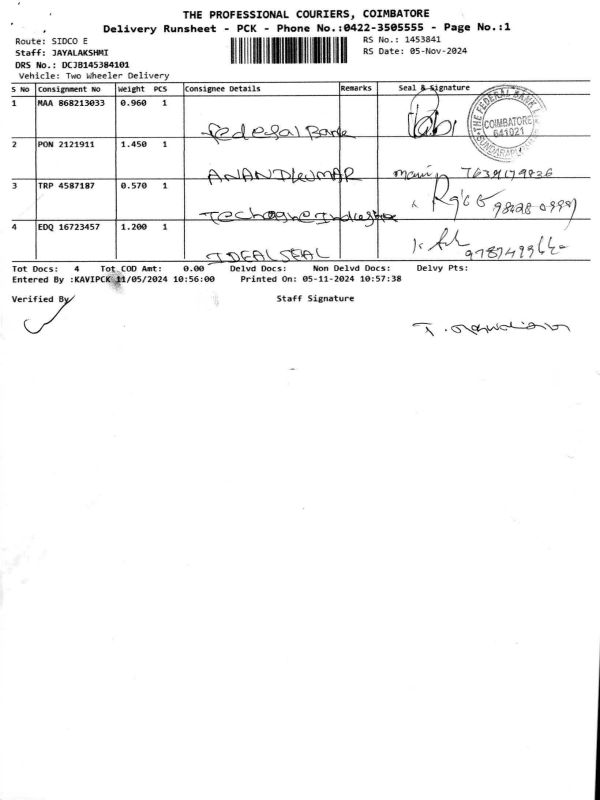 THE PROFESSIONAL COURIERS, COIMBATORE
Delivery Runsheet - PCK - Phone No.:0422-3505555 - Page No.:1
Route: SIDCO E
RS No.: 1453841
Staff: JAYALAKSHMI
RS Date: 05-Nov-2024
DRS No.: DCJB145384101
Vehicle: Two Wheeler Delivery
S No Consignment No Weight PCS Consignee Details Remarks Seal & Signature
1 MAA 868213033 0.960 1
Federal Bank
THE FEDERAL BANK
COIMBATORE
641021
2 PON 2121911 1.450 1
ANANDKUMAR
3 TRP 4587187 0.570 1
4 EDQ 16723457 1.200 1
IDEAL SEAL
Tot Docs: 4 Tot COD Amt: 0.00 Delvd Docs: Non Delvd Docs: Delvy Pts:
Entered By :KAVIPCK 11/05/2024 10:56:00 Printed On: 05-11-2024 10:57:38
Verified By Staff Signature